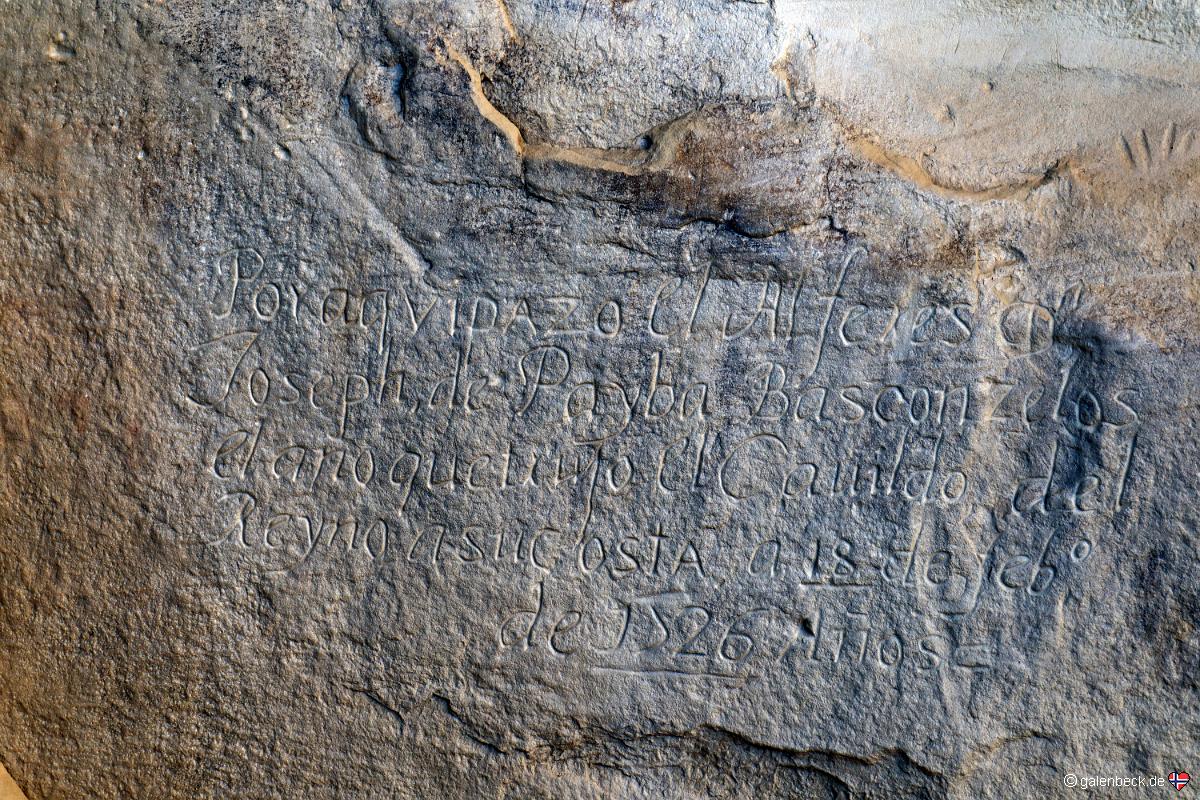 Por aquipazo el Alferes Dn
Joseph, de Payba Basconzelos
el año que trujo el Cauildo del
Reyno a su costa a 18 de febo
de 1526 Años
© galenbeck.de